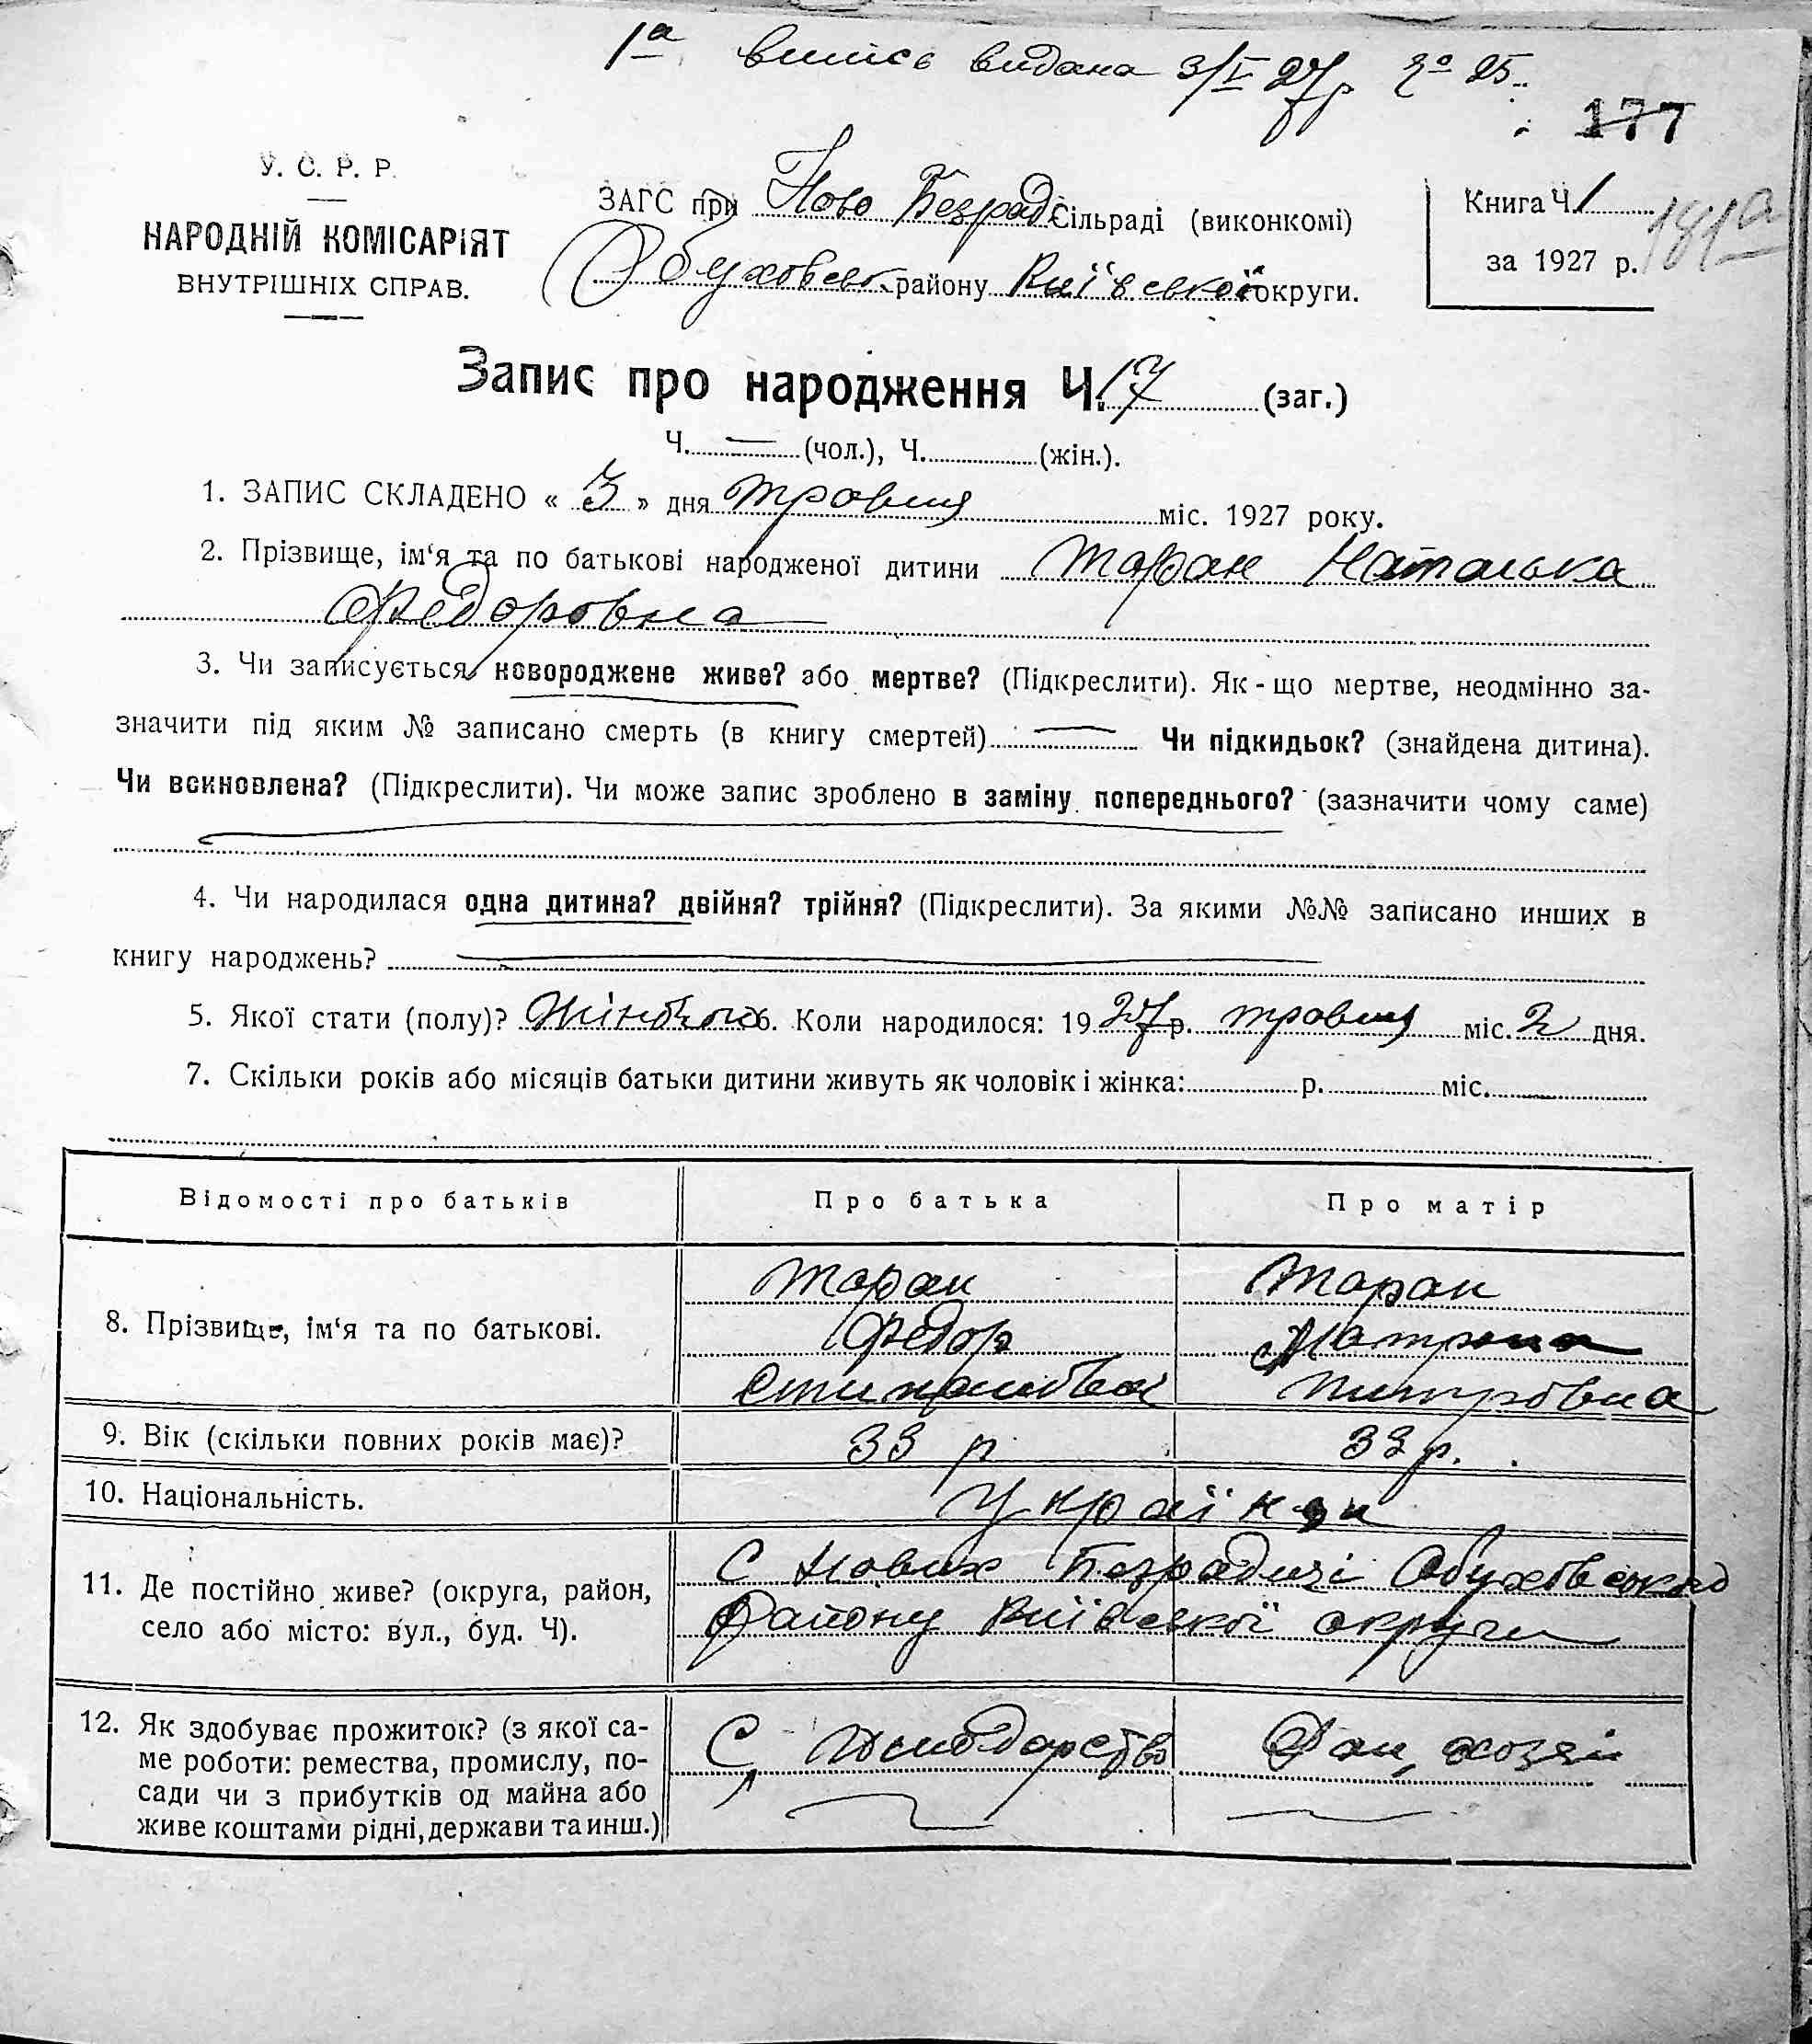 1а випись видана 3/V 27р № 25
177
У. С. Р. Р.
НАРОДНІЙ КОМІСАРІЯТ
ВНУТРІШНІХ СПРАВ.
ЗАГС при Ново Безрад Сільраді (виконкомі)
Обуховськ району Київської округи.
Книга Ч. 1
за 1927 р.
181а
Запис про народження Ч. 17 (заг.)
Ч. — (чол.), Ч. (жін.).
1. ЗАПИС СКЛАДЕНО « 3 » дня травня міс. 1927 року.
2. Прізвище, ім‘я та по батькові народженої дитини Таран Наталька
Федоровна
3. Чи записується новороджене живе? або мертве? (Підкреслити). Як - що мертве, неодмінно за-
значити під яким № записано смерть (в книгу смертей) — Чи підкидьок? (знайдена дитина).
Чи всиновлена? (Підкреслити). Чи може запис зроблено в заміну попереднього? (зазначити чому саме)
4. Чи народилася одна дитина? двійня? трійня? (Підкреслити). За якими №№ записано инших в
книгу народжень?
5. Якої стати (полу)? 6. Коли народилося: 1927 р. травня міс. 2 дня.
7. Скільки років або місяців батьки дитини живуть як чоловік і жінка: р. міс.
Відомості про батьків Про батька Про матір
8. Прізвище, ім‘я та по батькові.
Таран Таран
Федор Мотрона
9. Вік (скільки повних років має)? 33 р 33 р.
10. Національність. Українци
11. Де постійно живе? (округа, район,
село або місто: вул., буд. Ч).
С Нових Безрадичі Обуховського
району Київської округи
12. Як здобуває прожиток? (з якої са-
ме роботи: ремества, промислу, по-
сади чи з прибутків од майна або
живе коштами рідні, держави та инш.)